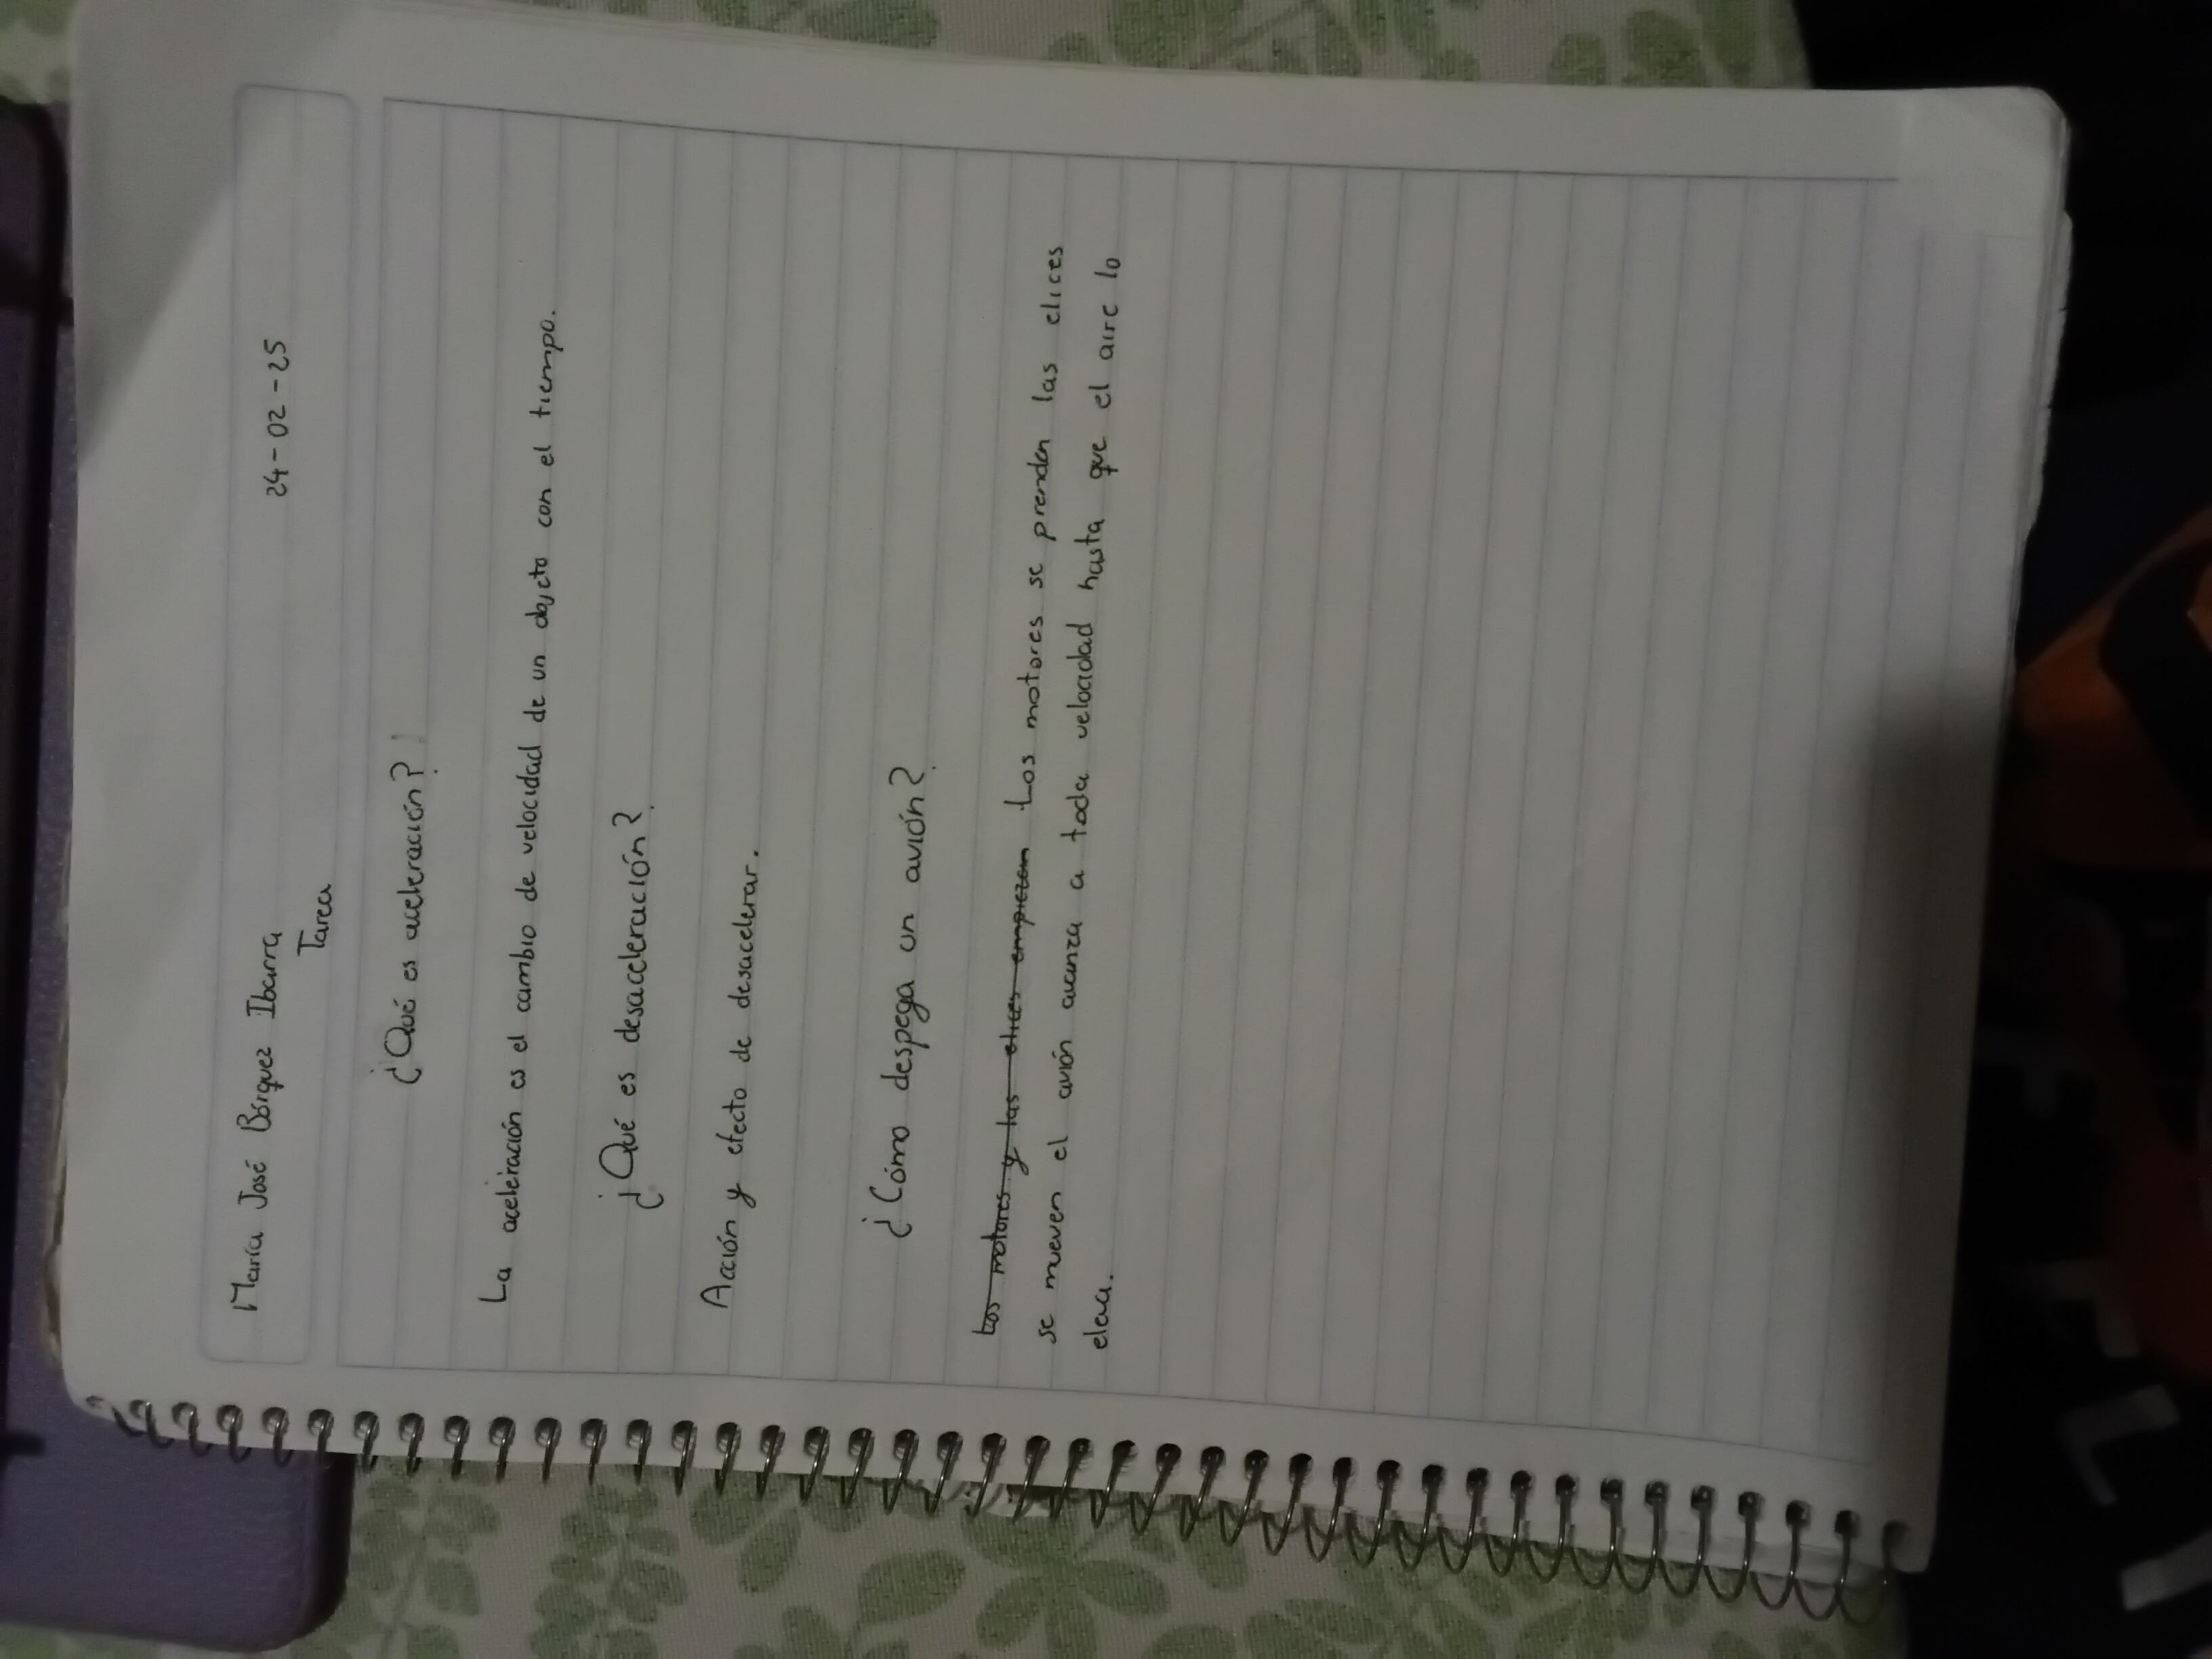 María José Bórquez Ibarra 24-02-25
Tarea
¿Qué es aceleración?
La aceleración es el cambio de velocidad de un objeto con el tiempo.
¿Qué es desaceleración?
Acción y efecto de desacelerar.
¿Cómo despega un avión?
Los motores y las elices empiezan Los motores se prenden las elices
se mueven el avión avanza a toda velocidad hasta que el aire lo
eleva.